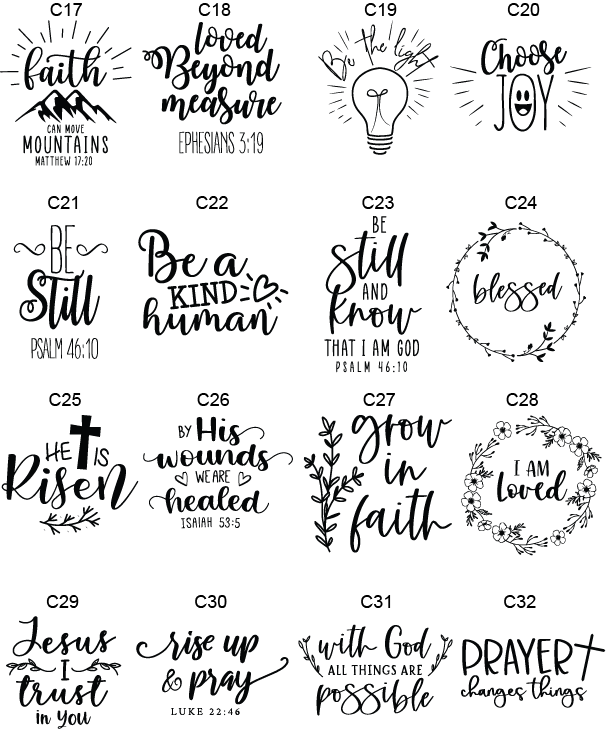 C17
faith
CAN MOVE
MOUNTAINS
MATTHEW 17:20
C18
loved
Beyond
measure
EPHESIANS 3:19
C19
Be the light
C20
Choose
JOY
C21
BE
Still
PSALM 46:10
C22
Be a
KIND
human
C23
BE
still
AND
know
THAT I AM GOD
PSALM 46:10
C24
blessed
C25
HE IS
Risen
C26
BY His
wounds
WE ARE
healed
ISAIAH 53:5
C27
grow
in
faith
C28
I AM
Loved
C29
Jesus
I
trust
in You
C30
rise up
& pray
LUKE 22:46
C31
with God
ALL THINGS ARE
possible
C32
PRAYER
changes things